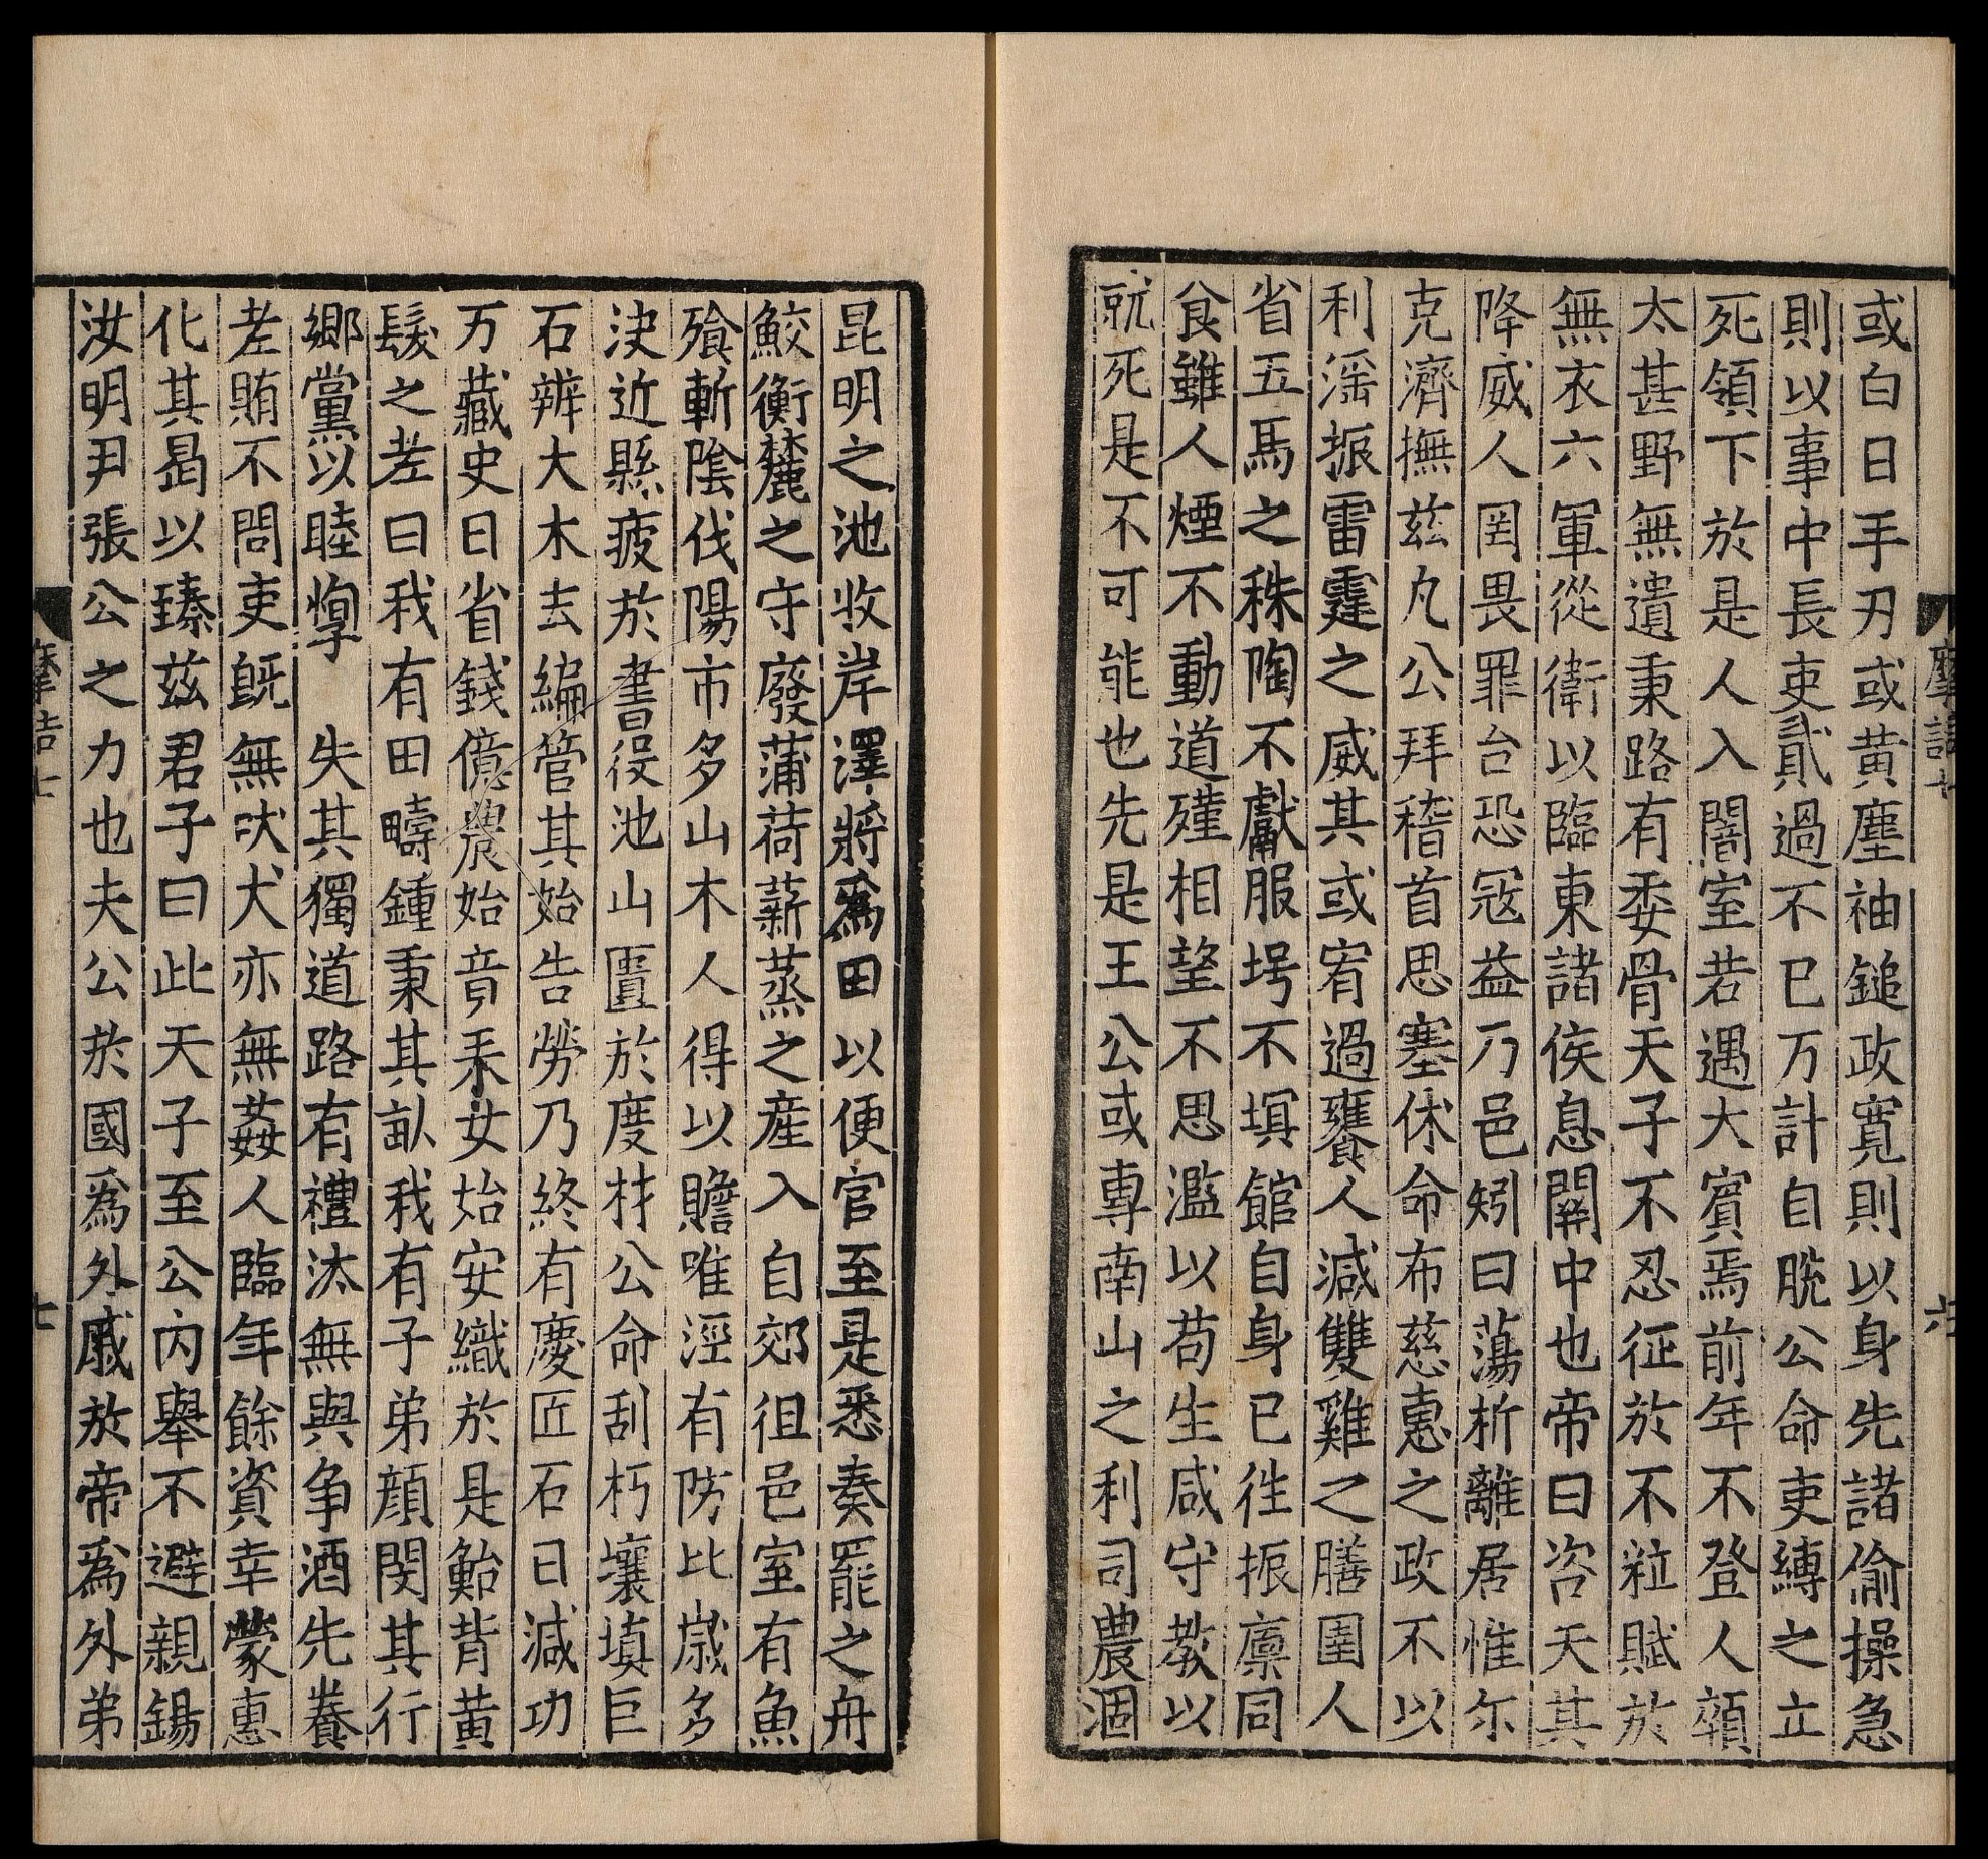 或白日手刃或黃塵袖鎚政寬則以身先諸偷操急
則以事中長吏貳過不已万計自脫公命吏縛之立
死領下於是人入闇室若遇大賓焉前年不登人顇
太甚野無遺秉路有委骨天子不忍征於不粒賦於
無衣六軍從衛以臨東諸侯息關中也帝曰咨天其
降威人罔畏罪台恐寇益乃邑矧曰蕩析離居惟尔
克濟撫兹凡公拜稽首思塞休命布慈惠之政不以
利滛振雷霆之威其或宥過饔人減雙雞之膳圉人
省五馬之秣陶不獻服堮不塓館自身已徃振廩同
食雖人煙不動道殣相望不思濫以苟生咸守教以
就死是不可能也先是王公或專南山之利司農涸
昆明之池收岸澤將爲田以便官至是悉奏罷之舟
鮫衡麓之守廢蒲荷薪蒸之產入自郊徂邑室有魚
飱斬隂伐陽市多山木人得以贍唯涇有防比歲多
決近縣疲於書役池山匱於度材公命刮朽壤塡巨
石辨大木去編管其始告勞乃終有慶匠石日減功
万藏史日省錢億農始音耒女始安織於是鮐背黃
髮之耊曰我有田疇鍾秉其畝我有子弟顏閔其行
鄉黨以睦惸 失其獨道路有禮汰無與争酒先養
耊賄不問吏旣無吠犬亦無姦人臨年餘資幸蒙惠
化其曷以臻兹君子曰此天子至公內舉不避親錫
汝明尹張公之力也夫公於國爲外戚於帝爲外弟